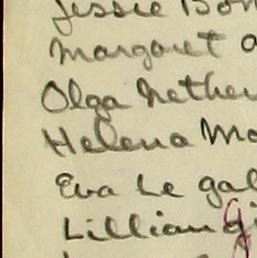 Jessie Bon
Margaret a
Olga Nether
Helena Mo
Eva Le gal
Lillian gi